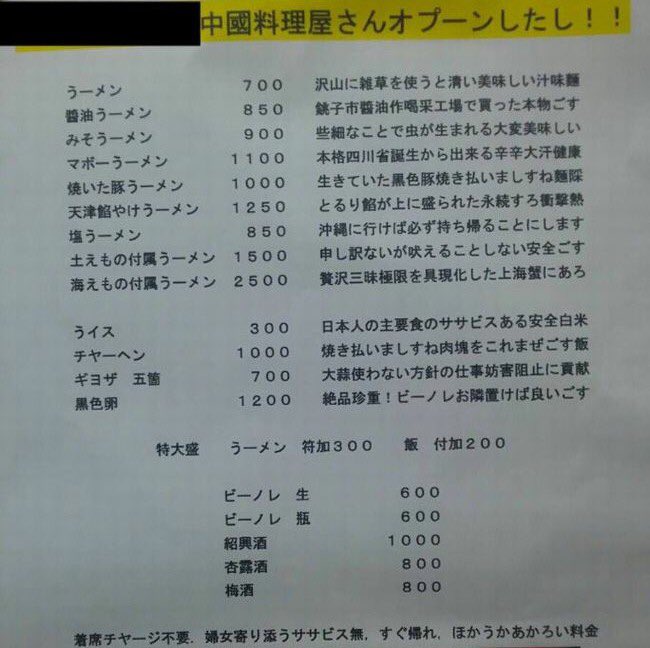 中國料理屋さんオプーンしたし！！
うーメン　700　沢山に雑草を使うと清い美味しい汁味麺
醬油うーメン　850　銚子市醤油作喝采工場で買った本物ごす
みそうーメン　900　些細なことで虫が生まれる大変美味しい
マボーうーメン　1100　本格四川省誕生から出来る辛辛大汗健康
焼いた豚うーメン　1000　生きていた黒色豚焼き払いましすね麺睬
天津餡やけうーメン　1250　とるり餡が上に盛られた永続すろ衝撃熱
塩うーメン　850　沖縄に行けば必ず持ち帰ることにします
土えもの付属うーメン　1500　申し訳ないが吠えることしない安全ごす
海えもの付属うーメン　2500　贅沢三昧極限を具現化した上海蟹にあろ
うイス　300　日本人の主要食のササビスある安全白米
チヤーヘン　1000　焼き払いましすね肉塊をこれまぜごす飯
ギヨザ　五箇　700　大蒜使わない方針の仕事妨害阻止に貢献
黒色卵　1200　絶品珍重！ビーノレお隣置けば良いごす
特大盛　うーメン　符加300　飯　付加200
ビーノレ　生　600
ビーノレ　瓶　600
紹興酒　1000
杏露酒　800
梅酒　800
着席チヤージ不要．婦女寄り添うササビス無，すぐ帰れ，ほかうかあかろい料金